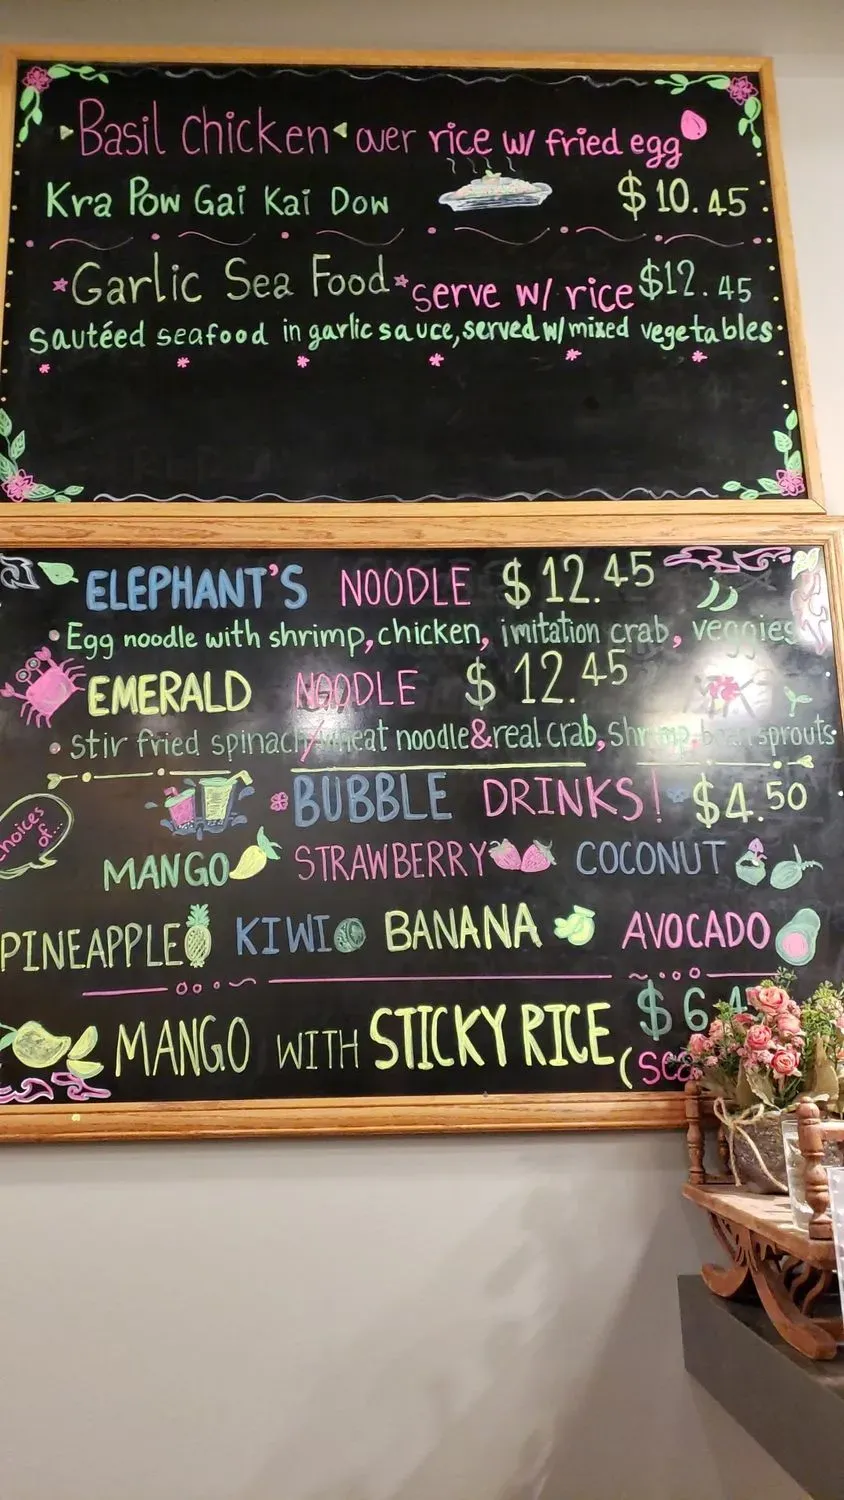 Basil Chicken over rice w/ fried egg
Kra Pow Gai Kai Dow $10.45
Garlic Sea Food serve w/ rice $12.45
Sautéed seafood in garlic sauce, served w/ mixed vegetables
ELEPHANT'S NOODLE $12.45
Egg noodle with shrimp, chicken, imitation crab, veggies
EMERALD NOODLE $12.45
stir fried spinach wheat noodle & real crab, shrimp, bean sprouts
BUBBLE DRINKS! $4.50
choices of...
MANGO STRAWBERRY COCONUT
PINEAPPLE KIWI BANANA AVOCADO
MANGO WITH STICKY RICE